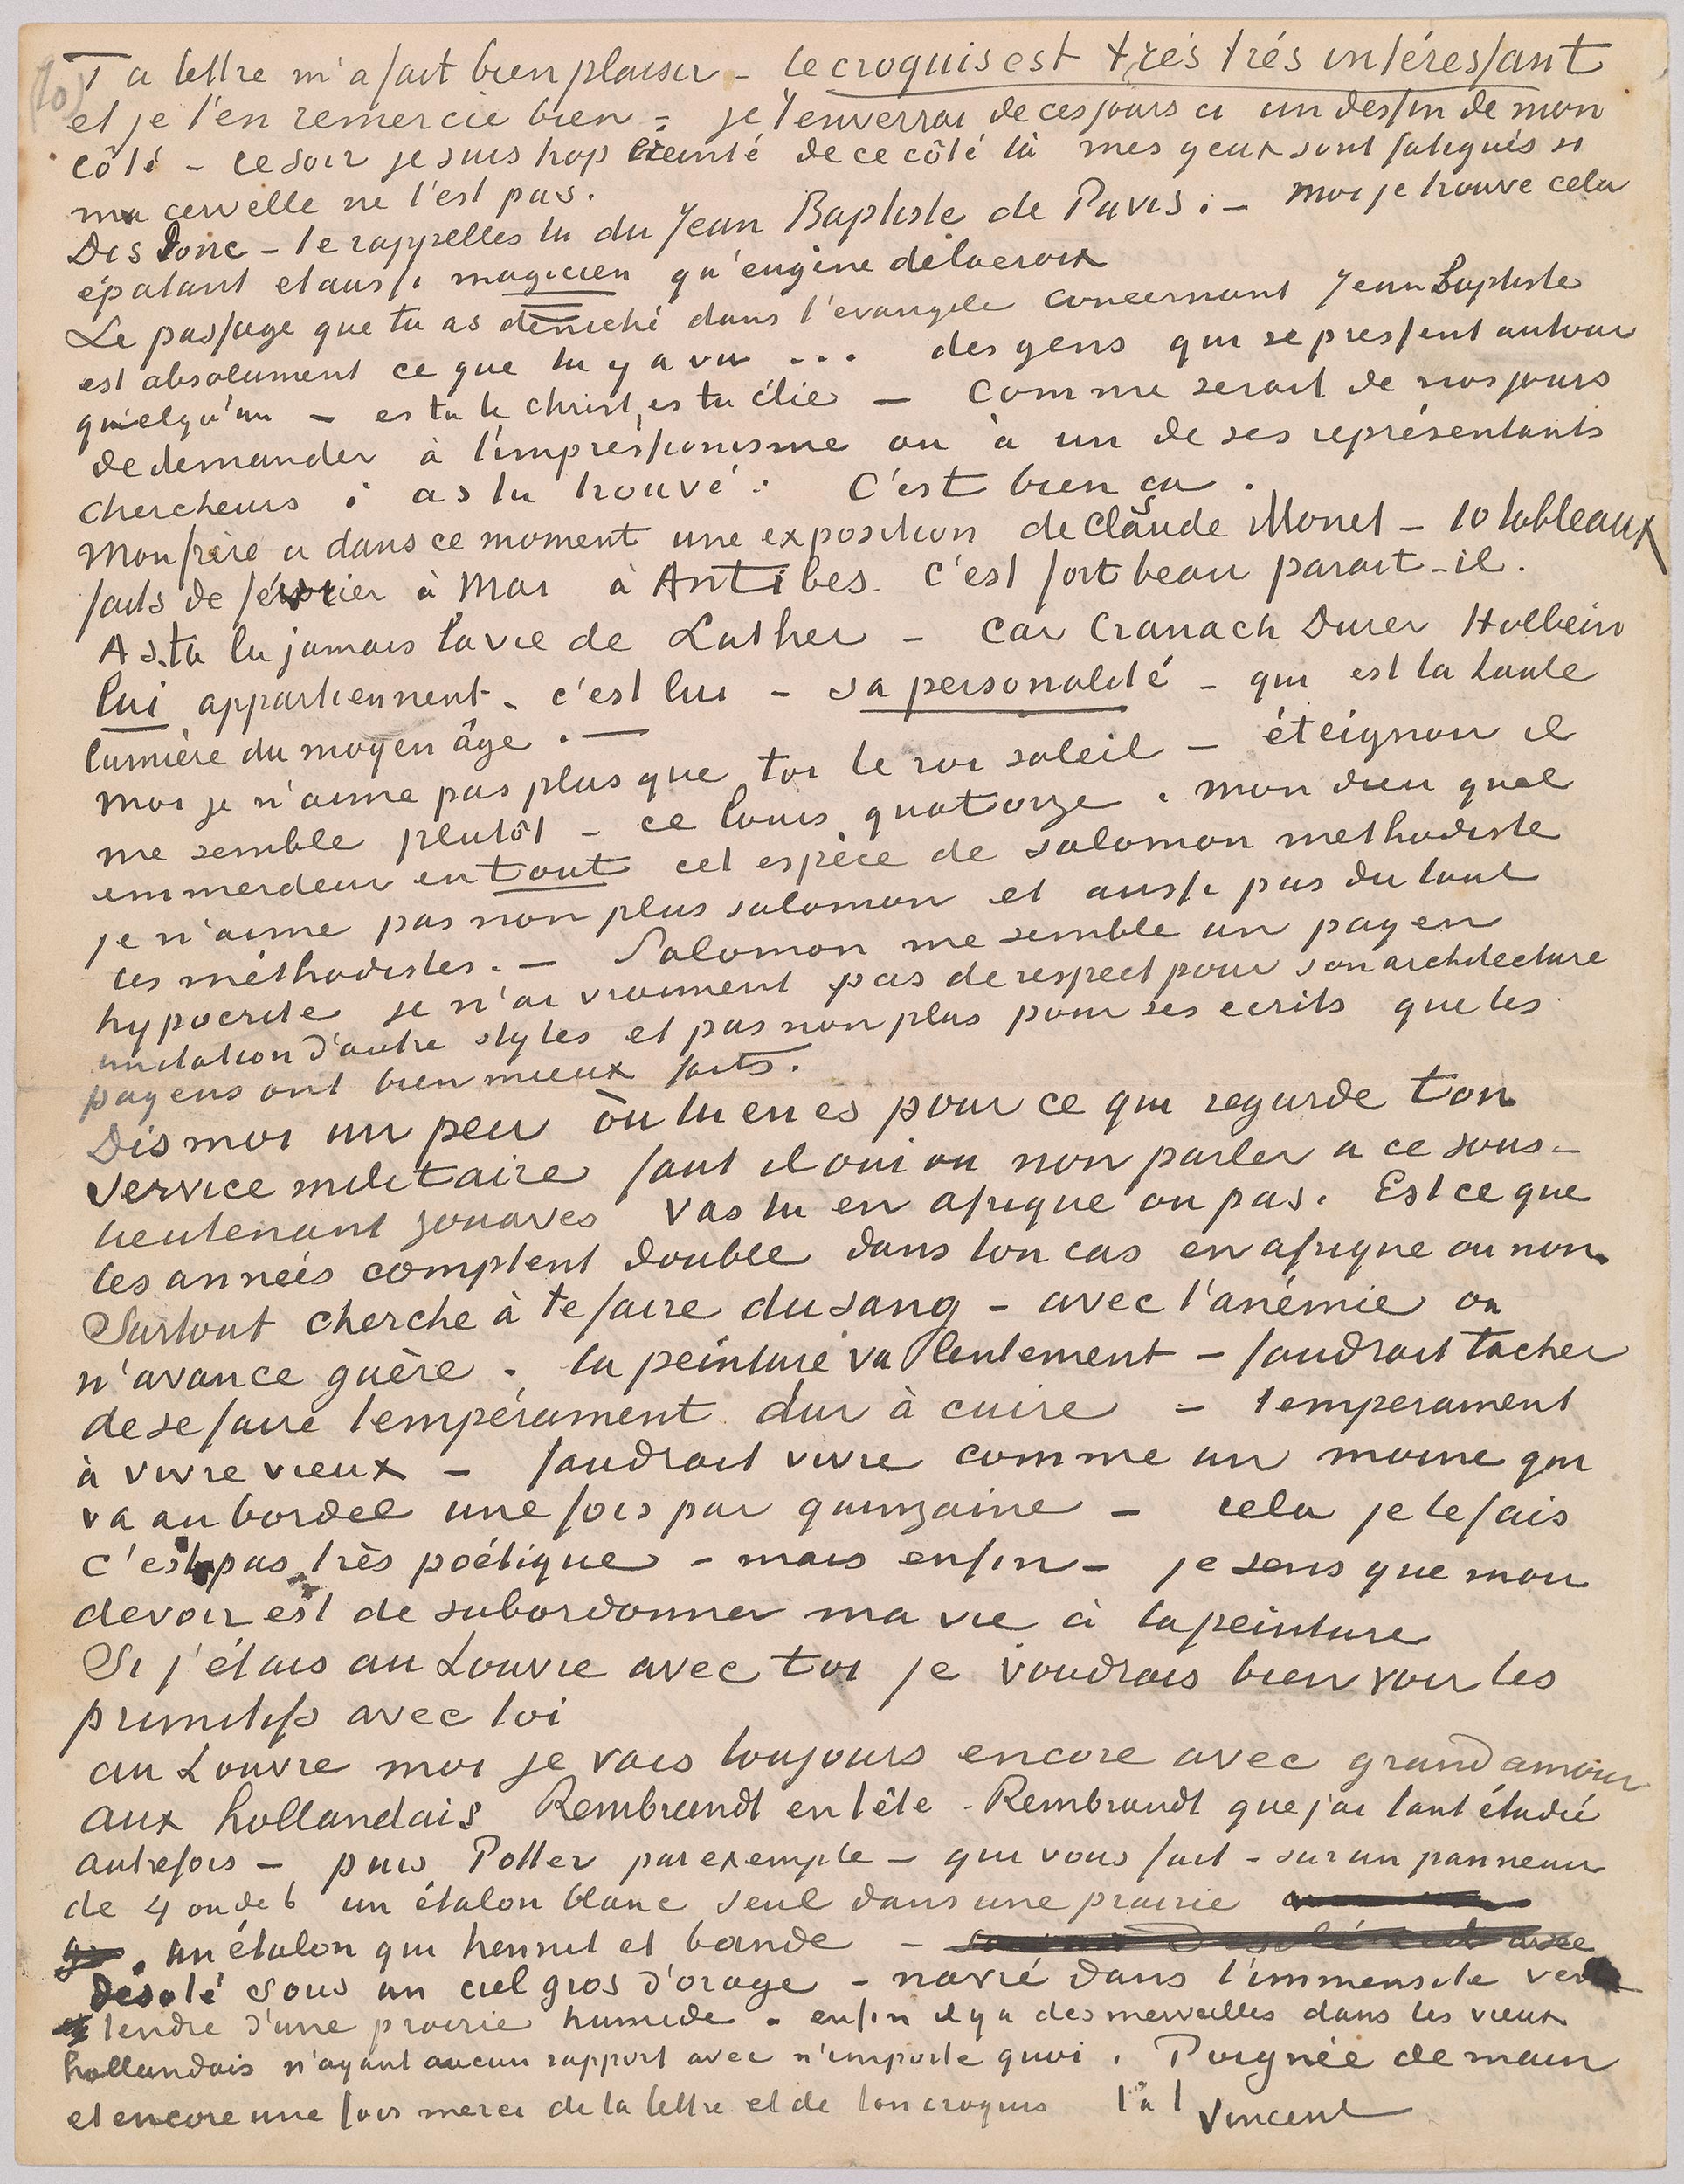 (10)
Ta lettre m'a fait bien plaisir – le croquis est très très intéressant
et je t'en remercie bien – je t'enverrai de ces jours ci un dessin de mon
côté – ce soir je suis trop éreinté de ce côté là mes yeux sont fatigués si
ma cervelle ne l'est pas.
Dis donc – te rappelles tu du Jean Baptiste de Puvis. – moi je trouve cela
épatant et aussi magicien qu'eugène delacroix
Le passage que tu as déniché dans l'evangile concernant Jean Baptiste
est absolument ce que tu y a vu ... des gens qui se pressent autour
quelqu'un – es tu le christ, es tu élie – Comme serait de nos jours
de demander à l'impressionisme ou à un de ses représentants
chercheurs : as tu trouvé. C'est bien ça.
mon frère a dans ce moment une exposition de Claude Monet – 10 tableaux
faits de février à Mai à Antibes. c'est fort beau parait-il.
As tu lu jamais la vie de Luther – car Cranach Durer Holbein
lui appartiennent – c'est lui – sa personalité – qui est la haute
lumière du moyen âge. –
moi je n'aime pas plus que toi le roi soleil – éteignoir il
me semble plutôt – ce louis quatorze. mon dieu quel
emmerdeur en tout cet espèce de salomon methodiste
je n'aime pas non plus salomon et aussi pas du tout
les méthodistes. – Salomon me semble un payen
hypocrite je n'ai vraiment pas de respect pour son architecture
imitation d'autre styles et pas non plus pour ses ecrits que les
payens ont bien mieux faits.
Dis moi un peu où tu en es pour ce qui regarde ton
service militaire faut il oui ou non parler a ce sous-
lieutenant zouaves vas tu en afrique ou pas. Est ce que
les années comptent double dans ton cas en afrique ou non.
Surtout cherche à te faire du sang – avec l'anémie on
n'avance guère – la peinture va lentement – faudrait tacher
de se faire tempérament dur à cuire – temperament
à vivre vieux – faudrait vivre comme un moine qui
va au bordel une fois par quinzaine – cela je le fais
c'est pas très poétique – mais enfin – je sens que mon
devoir est de subordonner ma vie à la peinture
Si j'étais au Louvre avec toi je voudrais bien voir les
primitifs avec toi
au Louvre moi je vais toujours encore avec grand amour
aux hollandais Rembrandt en tête – Rembrandt que j'ai tant étudié
autrefois – puis Potter par exemple – qui vous fait – sur un panneau
de 4 ou de 6 un étalon blanc seul dans une prairie
. un étalon qui hennit et bande – désolé avec
désolé sous un ciel gros d'orage – navré dans l'immensite vert
tendre d'une prairie humide – enfin il y a des merveilles dans les vieux
hollandais n'ayant aucun rapport avec n'importe quoi. Poignée de main
et encore une fois merci de ta lettre et de ton croquis t. à t. Vincent